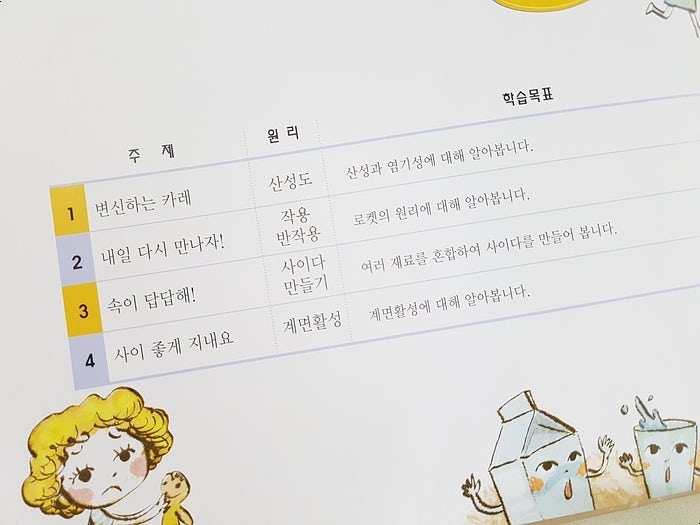 주 제 원 리 학습목표
1 변신하는 카레 산성도 산성과 염기성에 대해 알아봅니다.
2 내일 다시 만나자! 작용 반작용 로켓의 원리에 대해 알아봅니다.
3 속이 답답해! 사이다 만들기 여러 재료를 혼합하여 사이다를 만들어 봅니다.
4 사이 좋게 지내요 계면활성 계면활성에 대해 알아봅니다.